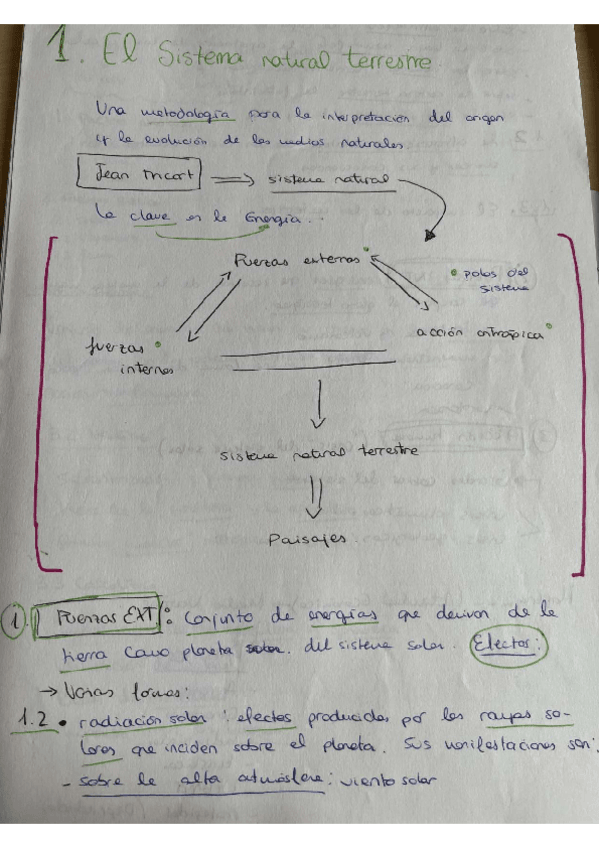 1. El Sistema natural terrestre
Una metodología para la interpretación del origen
y la evolución de los medios naturales
Jean Tricart ⇒ sistema natural
La clave es la Energía...
Fuerzas externas
• polos del
sistema
acción antrópica
fuerzas
internas
sistema natural terrestre
Paisajes
① Fuerzas EXT: Conjunto de energías que derivan de la
tierra como planeta del sistema solar. Efectos:
→ Varias formas:
1.2 • radiación solar: efectos producidos por los rayos so-
lares que inciden sobre el planeta. Sus manifestaciones son:
- sobre la alta atmósfera: viento solar